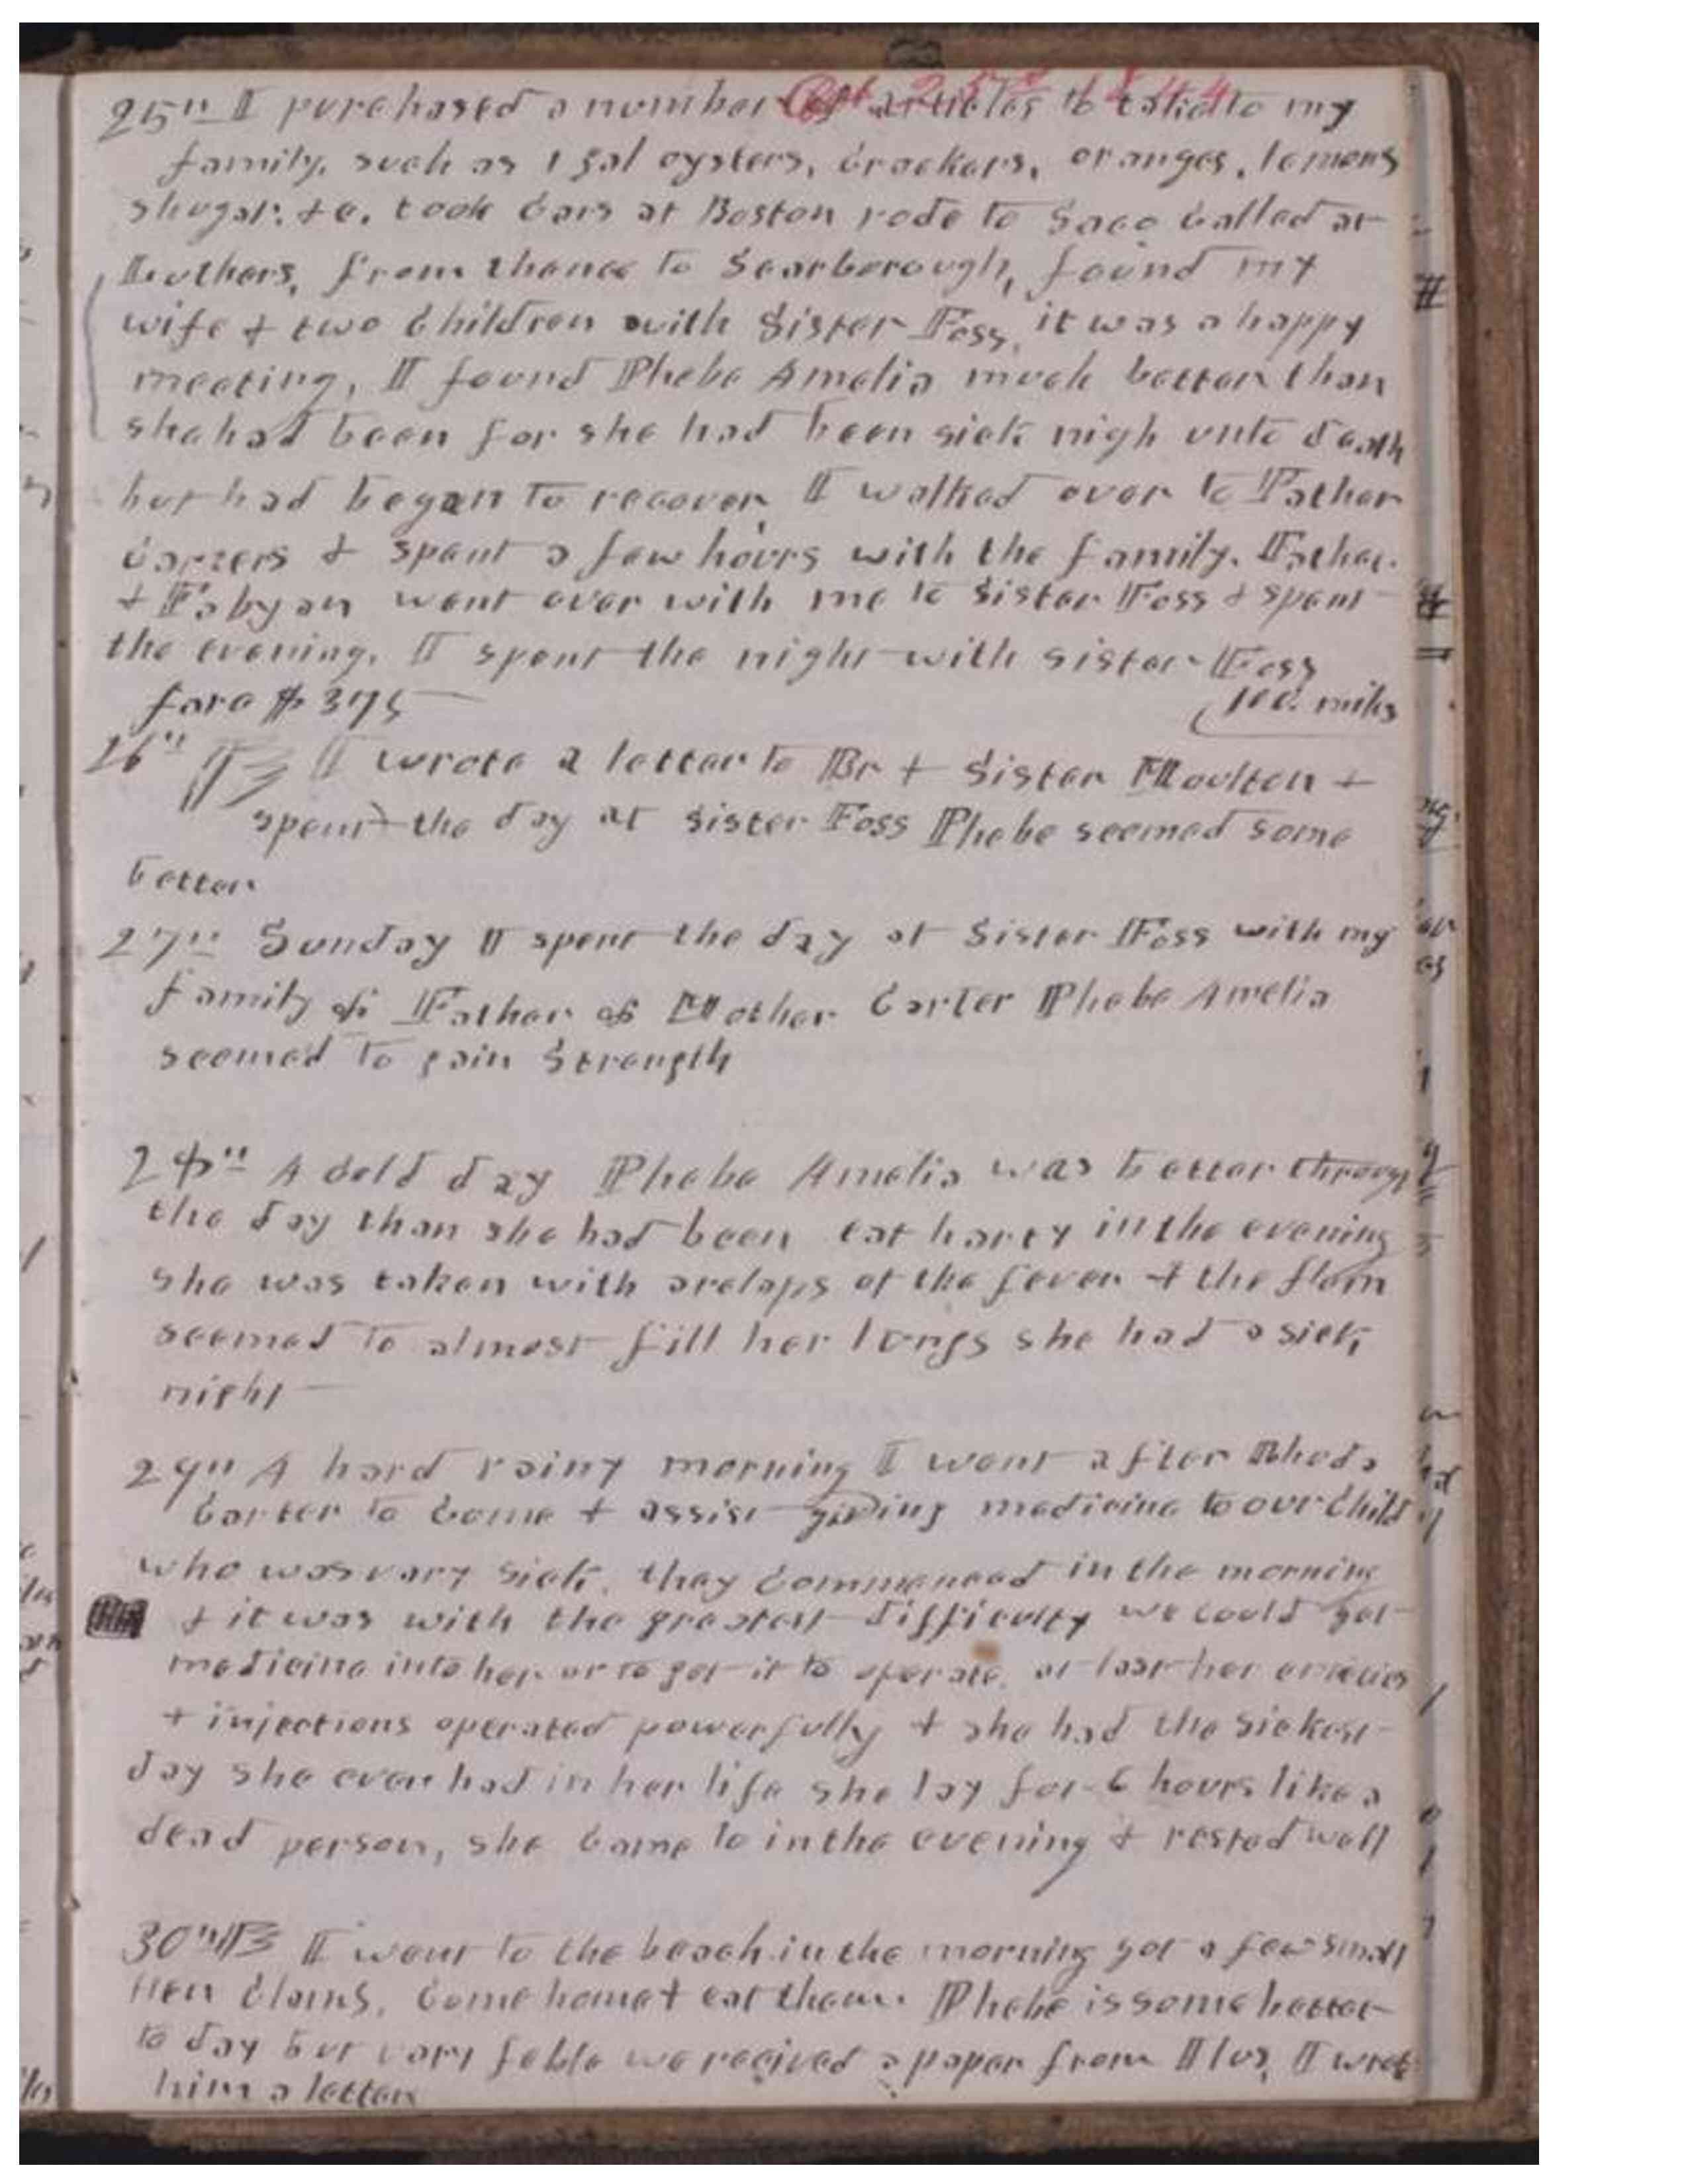 Oct 25th 1844
25th I purchased a number of articles to take to my
family, such as 1 gal oysters, Crackers, oranges, lemons
shugar. &c. took Cars at Boston rode to Saco Called at
Luthers, from thence to Scarborough, found my
wife & two Children with Sister Foss, it was a happy
meeting, I found Phebe Amelia much better than
she had been for she had been sick nigh unto death
but had began to recover I walked over to Father
Carters & spent a few hours with the family. Father
& Fabyan went over with me to Sister Foss & spent
the evening. I spent the night with sister Foss
fare $375
100. miles
26th I wrote a letter to Br & Sister Moulton &
spent the day at Sister Foss Phebe seemed some
better
27th Sunday I spent the day at Sister Foss with my
family & Father & Mother Carter Phebe Amelia
seemed to gain Strength
28th A Cold day Phebe Amelia was better through
the day than she had been eat harty in the evening
she was taken with a relaps of the fever & the flem
seemed to almost fill her lungs she had a sick
night
29th A hard rainy morning I went after Rhoda
Carter to Come & assist giving medicine to our Child
who was vary sick. they Commenced in the morning
& it was with the greatest difficulty we Could get
medicine into her or to get it to operate. at last her emetics
& injections operated powerfully & she had the sickest
day she ever had in her life she lay for 6 hours like a
dead person, she Came to in the evening & rested well
30th I went to the beach in the morning got a few small
Hen Clams. Come home & eat them. Phebe is some better
to day but vary feble we recived a paper from Ilus, I wrote
him a letter